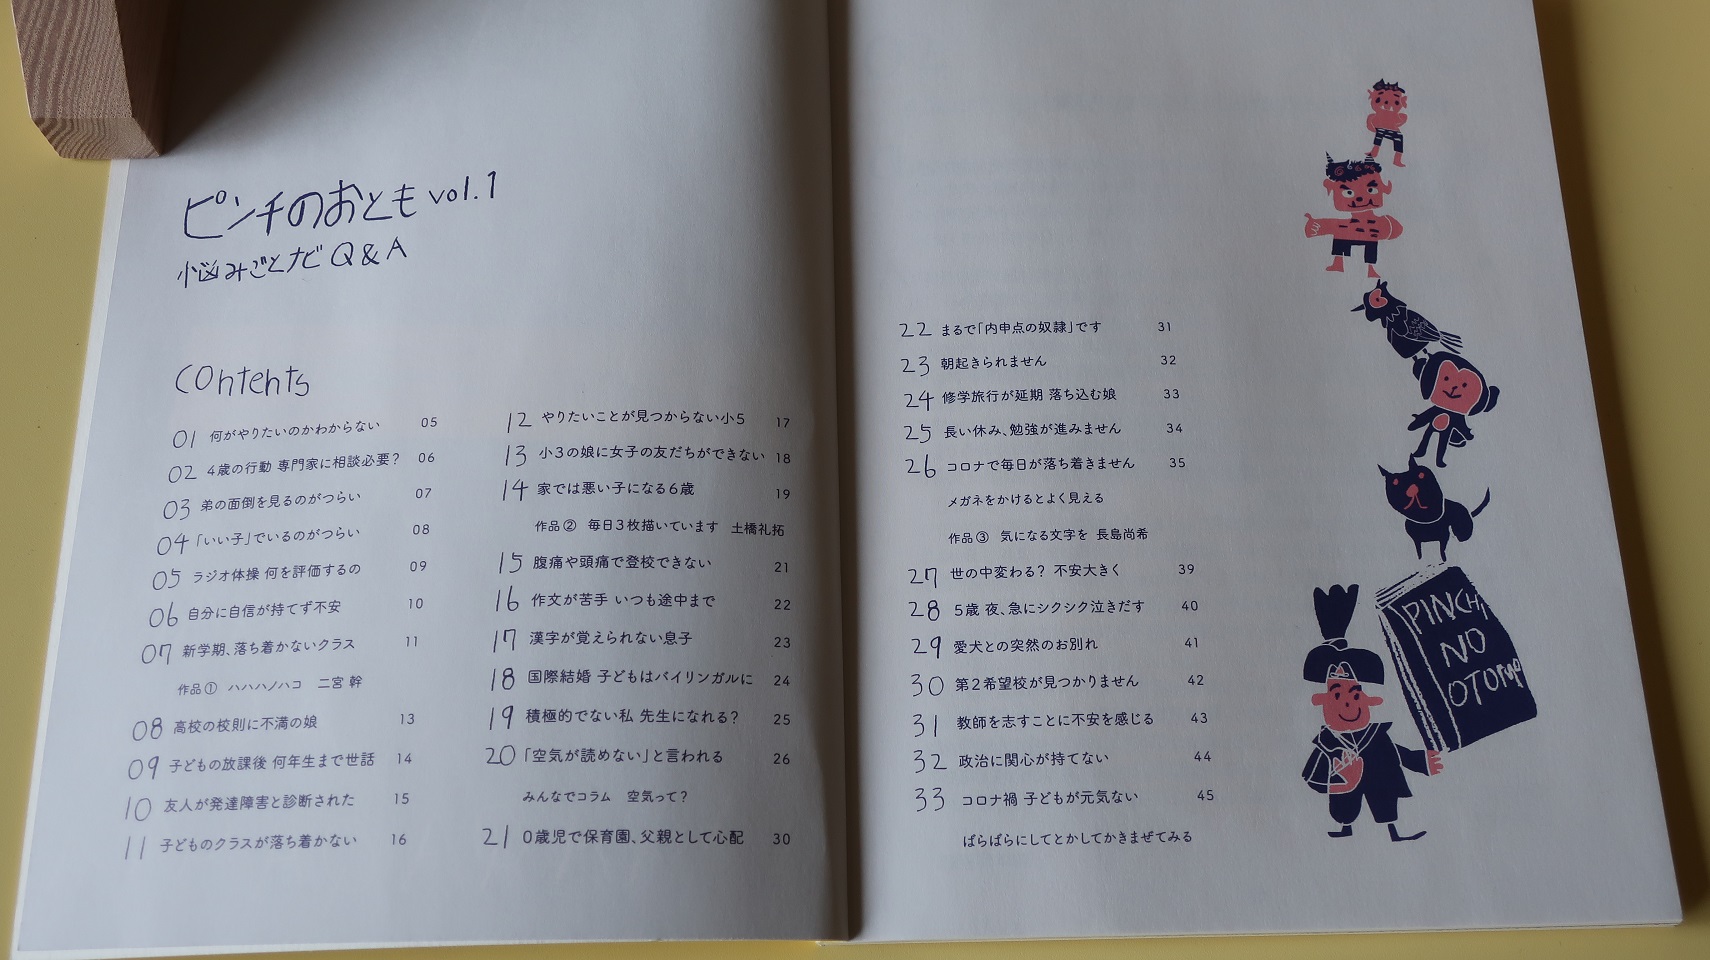 ピンチのおとも vol.1
悩みごとナビ Q&A
Contents
01 何がやりたいのかわからない 05
02 4歳の行動 専門家に相談必要? 06
03 弟の面倒を見るのがつらい 07
04 「いい子」でいるのがつらい 08
05 ラジオ体操 何を評価するの 09
06 自分に自信が持てず不安 10
07 新学期、落ち着かないクラス 11
作品① ハハハノハコ 二宮 幹
08 高校の校則に不満の娘 13
09 子どもの放課後 何年生まで世話 14
10 友人が発達障害と診断された 15
11 子どものクラスが落ち着かない 16
12 やりたいことが見つからない小5 17
13 小3の娘に女子の友だちができない 18
14 家では悪い子になる6歳 19
作品② 毎日3枚描いています 土橋礼拓
15 腹痛や頭痛で登校できない 21
16 作文が苦手 いつも途中まで 22
17 漢字が覚えられない息子 23
18 国際結婚 子どもはバイリンガルに 24
19 積極的でない私 先生になれる? 25
20 「空気が読めない」と言われる 26
みんなでコラム 空気って?
21 0歳児で保育園、父親として心配 30
22 まるで「内申点の奴隷」です 31
23 朝起きられません 32
24 修学旅行が延期 落ち込む娘 33
25 長い休み、勉強が進みません 34
26 コロナで毎日が落ち着きません 35
メガネをかけるとよく見える
作品③ 気になる文字を 長島尚希
27 世の中変わる? 不安大きく 39
28 5歳 夜、急にシクシク泣きだす 40
29 愛犬との突然のお別れ 41
30 第2希望校が見つかりません 42
31 教師を志すことに不安を感じる 43
32 政治に関心が持てない 44
33 コロナ禍 子どもが元気ない 45
ばらばらにしてとかしてかきまぜてみる
PINCHI
NO
OTOMO